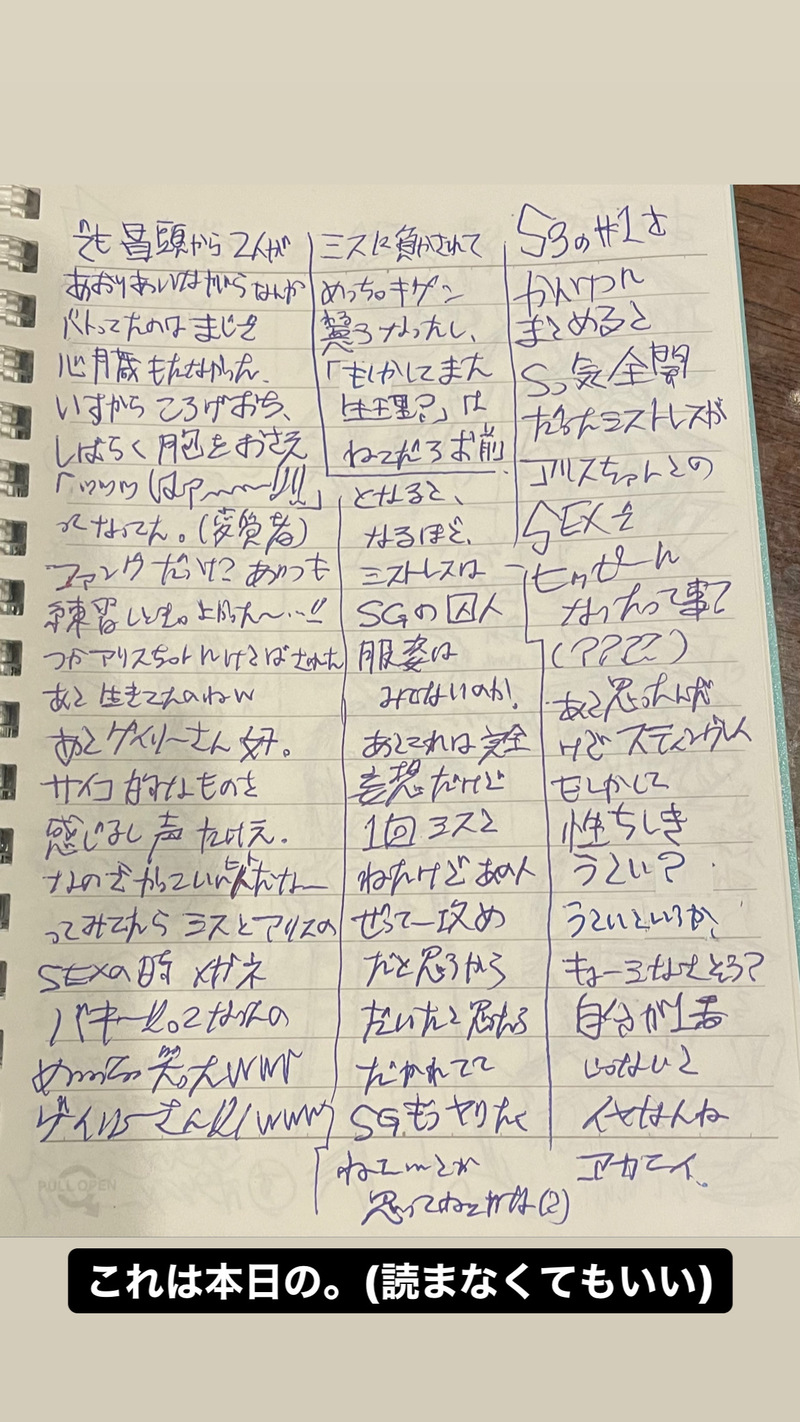 でも冒頭から2人が
あおりあいながらなんか
バトってたのはまじで
心臓もたなかった、
いすからころげおち、
しばらく胸をおさえ
ってなってた。(変質者)
ファングだっけ?あいつも
練習しとも。よかった〜…!!
つかアリスちゃん
あと生きてたのねw
あとゲイリーさん好。
サイコ的なものを
感じるし声たけえ。
なのでかっていい人だなー
ってみてたらミスとアリスの
SEXの時メガネ
バキーってなったの
めっっっちゃ笑ったwww
ゲイリーさんwww
ミスに負かされて
めっちゃキゲン
悪くなったし、
「もしかしてまた
生理?」は
ねえだろお前
となると、
なるほど、
ミストレスは
SGの囚人
服姿は
みてないのか!
あとこれは完全
妄想だけど
1回ミスと
ねたけどあの人
ぜってー攻め
だと思うから
だいたと思ったら
だかれてて
SGもうヤりたく
ねェ…とか
思ってねえかな(2)
S3の#1を
かんけつに
まとめると
Sっ気全開
だったミストレスが
アリスちゃんとの
SEXで
ヒッせーん
なったって事で
(????)
あと思ったんだ
けどスティングレイ
もしかして
性ちしき
うとい?
うといというか、
きょーみなさそう?
自分が1番
じゃないと
イヤなんね
アカデイ。
PULL OPEN
これは本日の。(読まなくてもいい)